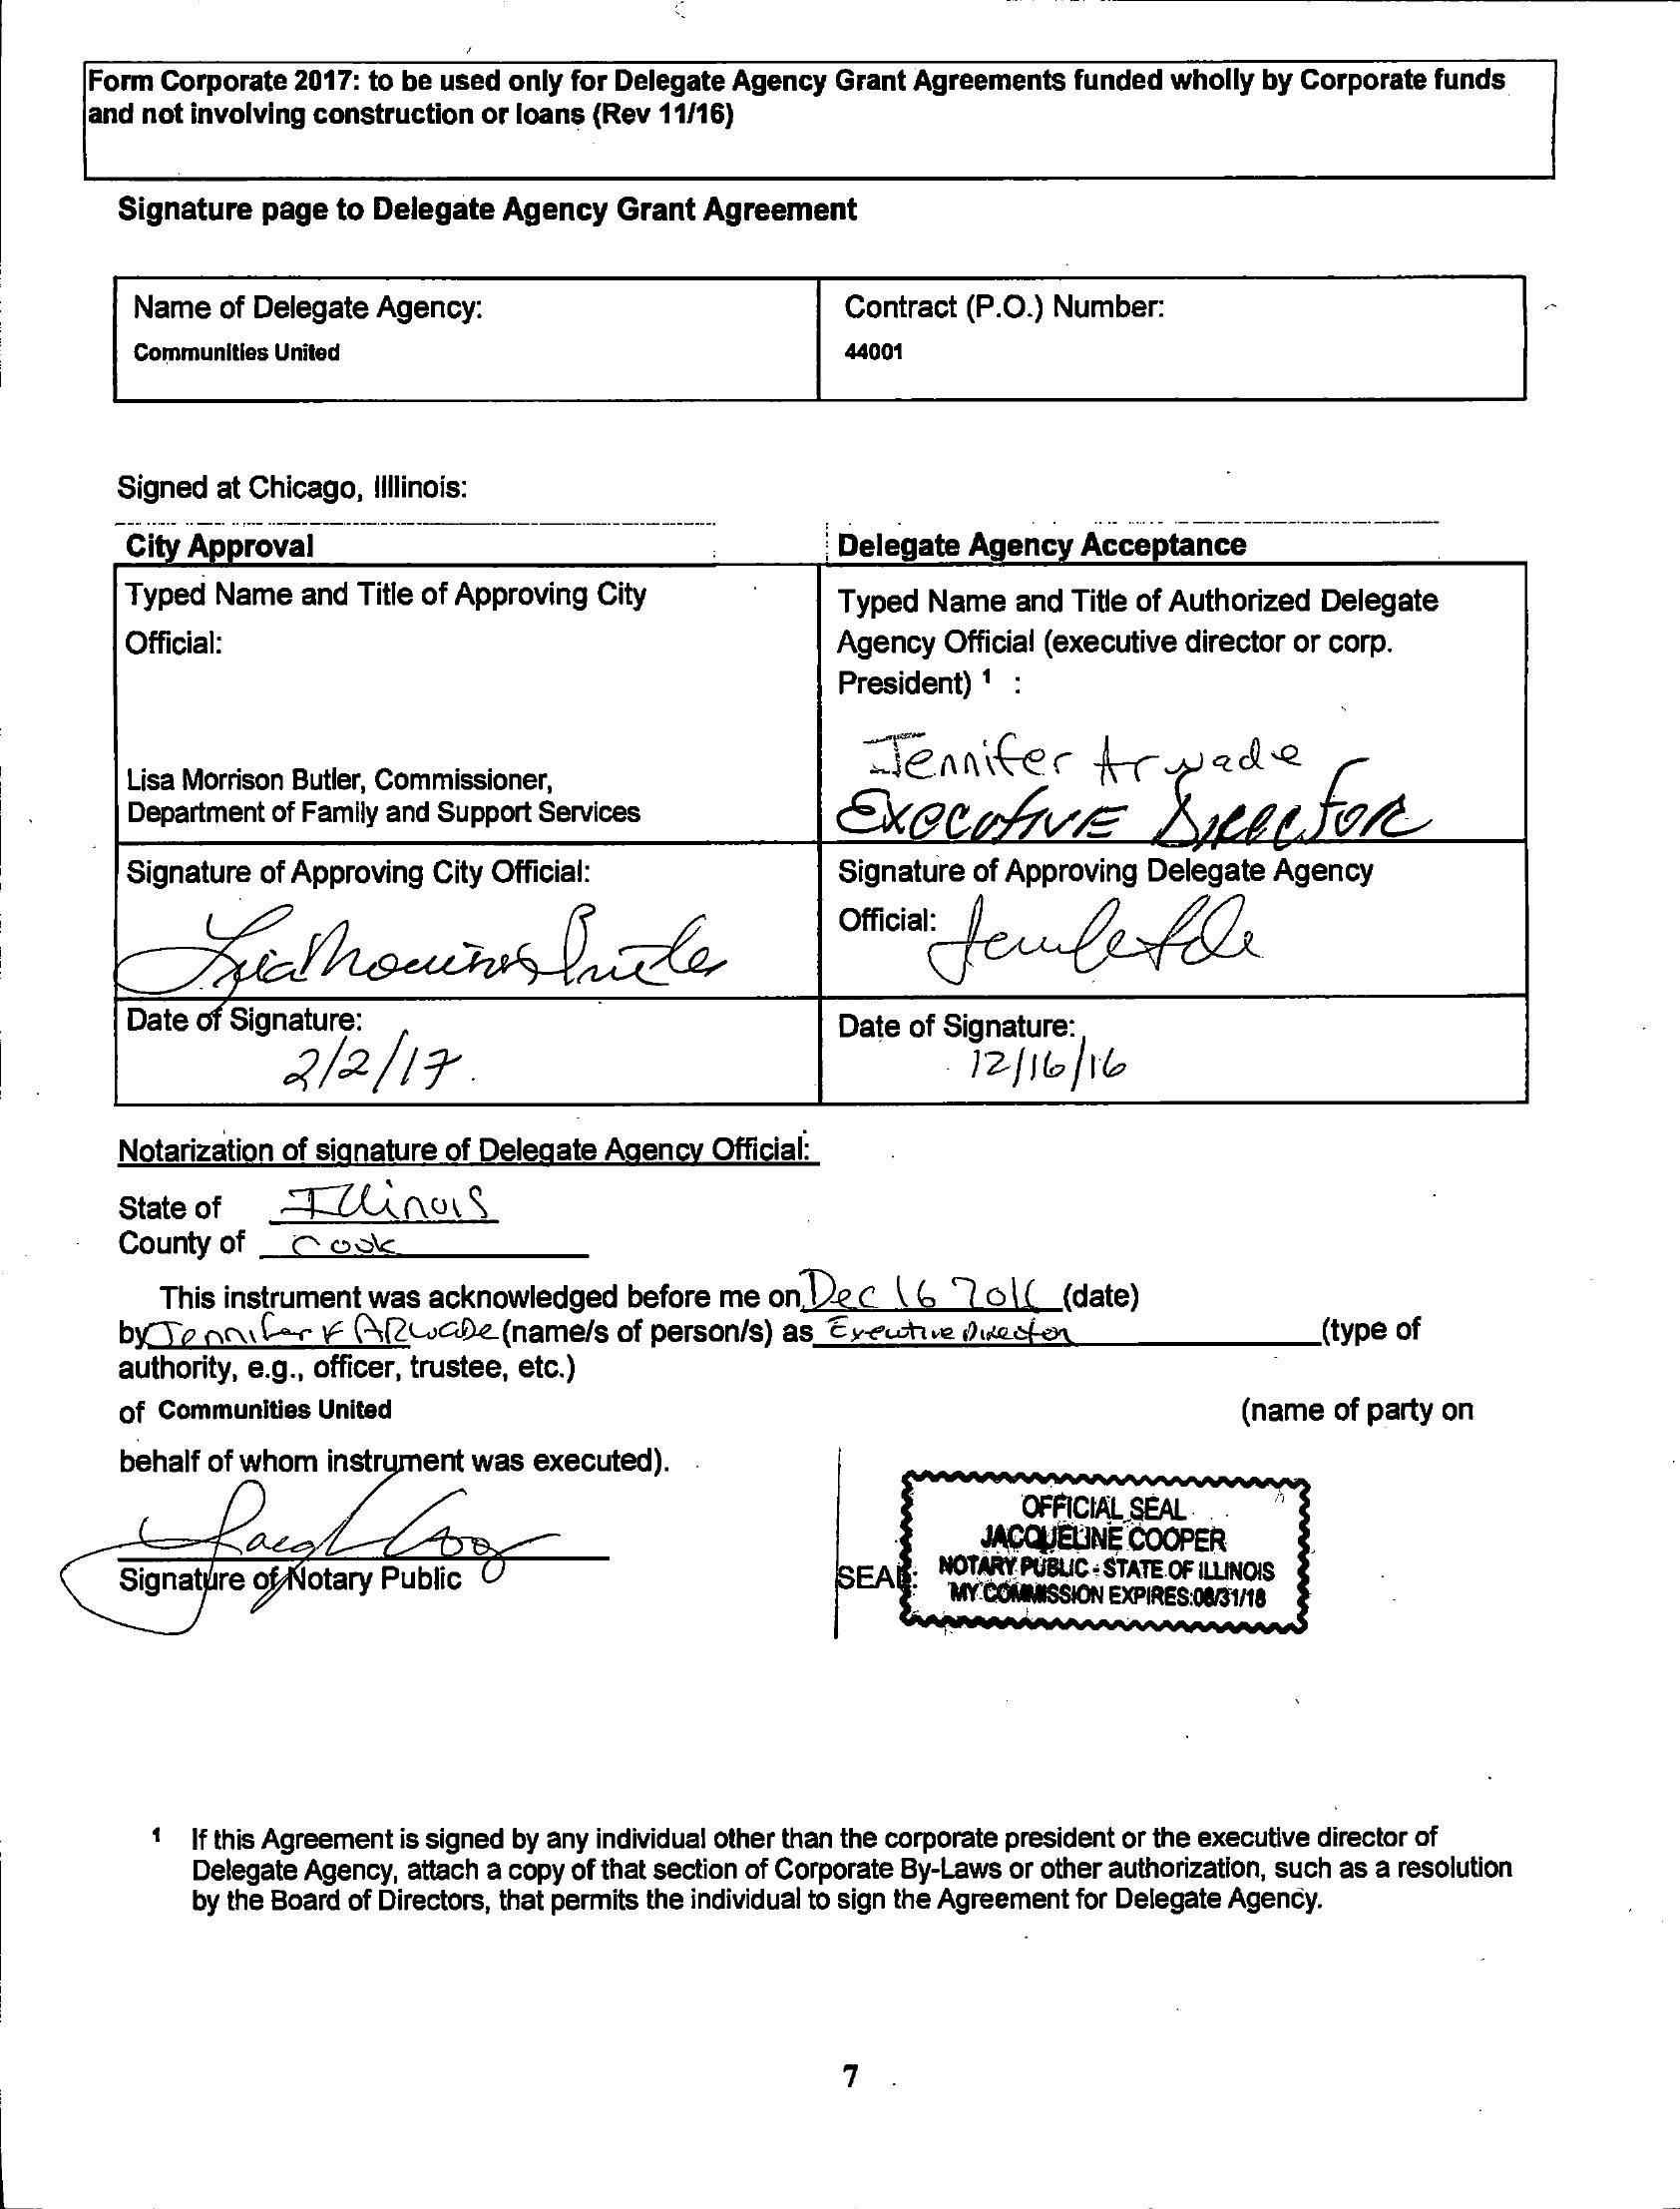 Form Corporate 2017: to be used only for Delegate Agency Grant Agreements funded wholly by Corporate funds
and not involving construction or loans (Rev 11/16)
Signature page to Delegate Agency Grant Agreement
Name of Delegate Agency:
Communities United
Contract (P.O.) Number:
44001
Signed at Chicago, Illlinois:
City Approval
Typed Name and Title of Approving City
Official:
Lisa Morrison Butler, Commissioner,
Department of Family and Support Services
Signature of Approving City Official:
Lisa Morrison Butler
Date of Signature:
2/2/17
Delegate Agency Acceptance
Typed Name and Title of Authorized Delegate
Agency Official (executive director or corp.
President) 1 :
Jennifer Arwade
Executive Director
Signature of Approving Delegate Agency
Official:
Date of Signature:
12/16/16
Notarization of signature of Delegate Agency Official:
State of Illinois
County of Cook
This instrument was acknowledged before me on Dec 16 2016 (date)
by Jennifer K ARwade (name/s of person/s) as Executive Director (type of
authority, e.g., officer, trustee, etc.)
of Communities United (name of party on
behalf of whom instrument was executed).
Signature of Notary Public
SEAL:
OFFICIAL SEAL
JACQUELINE COOPER
NOTARY PUBLIC - STATE OF ILLINOIS
MY COMMISSION EXPIRES:08/31/18
1 If this Agreement is signed by any individual other than the corporate president or the executive director of
Delegate Agency, attach a copy of that section of Corporate By-Laws or other authorization, such as a resolution
by the Board of Directors, that permits the individual to sign the Agreement for Delegate Agency.
7